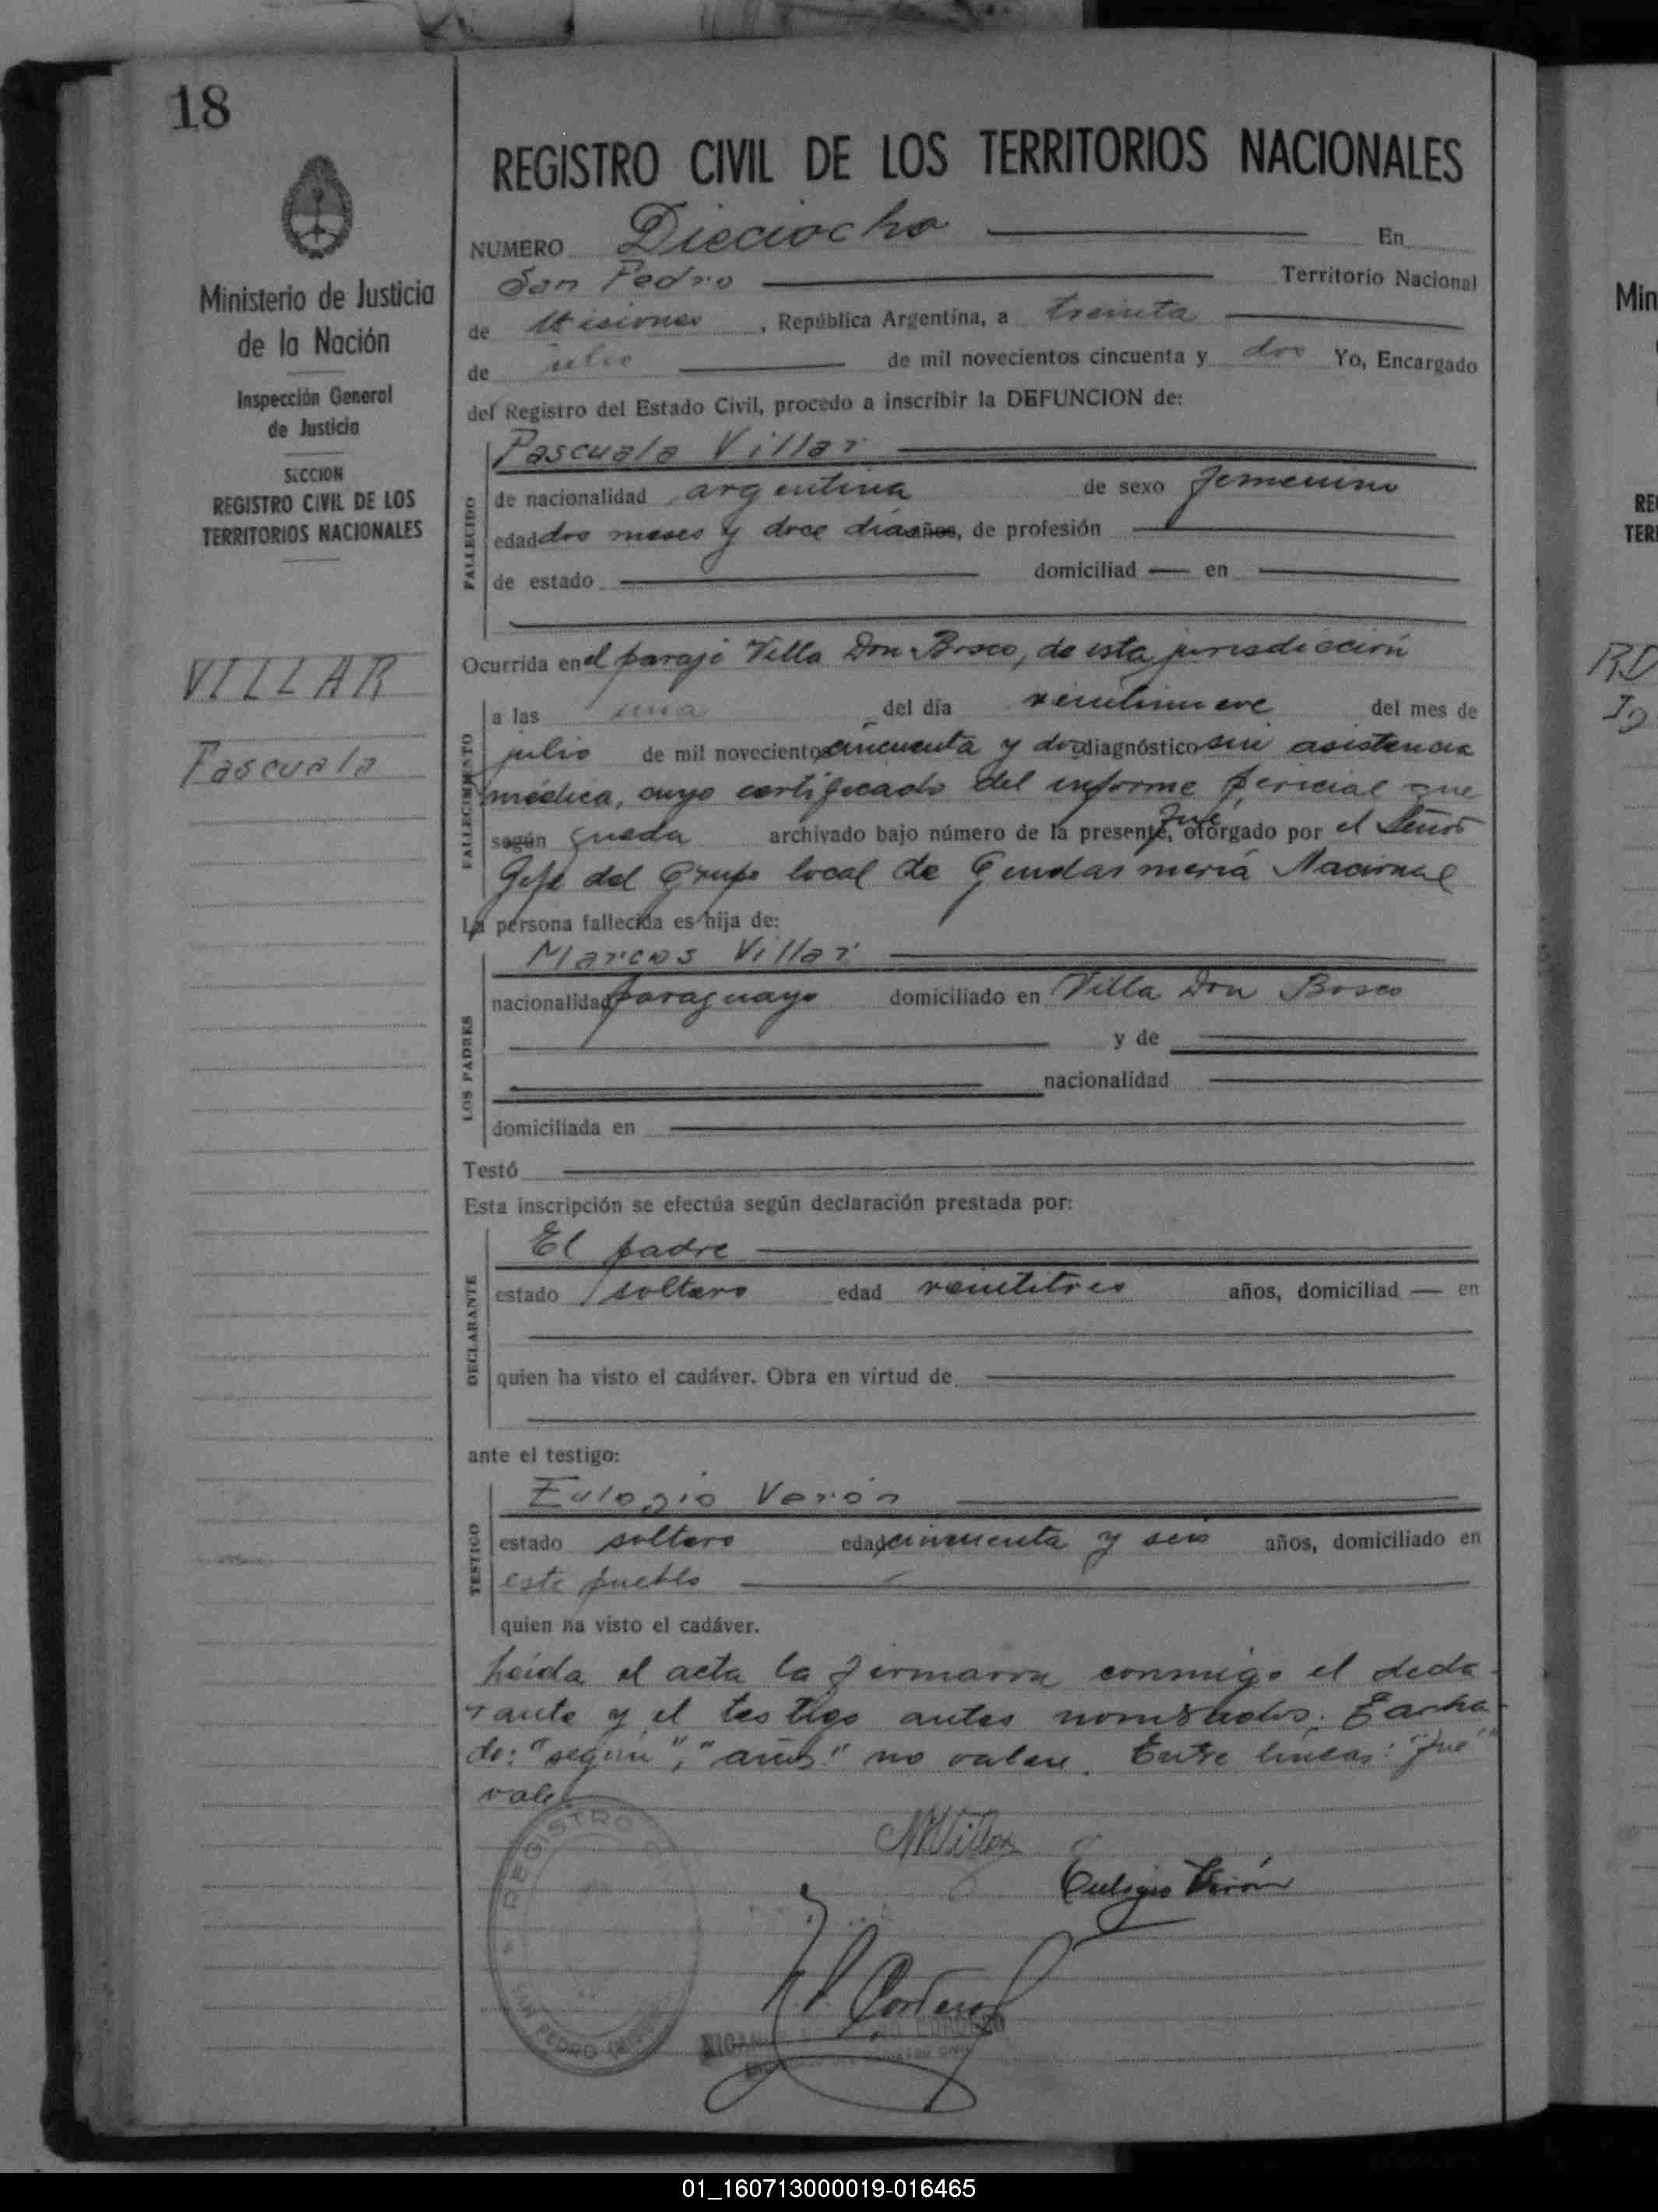 18
REGISTRO CIVIL DE LOS TERRITORIOS NACIONALES
NUMERO Dieciocho En
San Pedro Territorio Nacional
de Misiones, República Argentina, a treinta
de julio de mil novecientos cincuenta y dos Yo, Encargado
del Registro del Estado Civil, procedo a inscribir la DEFUNCION de:
Ministerio de Justicia
de la Nación
Inspección General
de Justicia
SECCION
REGISTRO CIVIL DE LOS
TERRITORIOS NACIONALES
VILLAR
Pascuala
FALLECIDO
Pascuala Villar
de nacionalidad argentina de sexo femenino
edad dos meses y doce días años, de profesión
de estado domiciliad — en
Ocurrida en el paraje Villa Don Bosco, de esta jurisdicción
FALLECIMIENTO
a las una del día veintinueve del mes de
julio de mil novecientos cincuenta y dos diagnóstico sin asistencia
médica, cuyo certificado del informe pericial que
fué
según queda archivado bajo número de la presente, otorgado por el Señor
Jefe del Grupo local de Gendarmería Nacional
La persona fallecida es hija de:
LOS PADRES
Marcos Villar
nacionalidad paraguayo domiciliado en Villa Don Bosco
y de
nacionalidad
domiciliada en
Testó
Esta inscripción se efectúa según declaración prestada por:
DECLARANTE
El padre
estado soltero edad veintitres años, domiciliad — en
quien ha visto el cadáver. Obra en virtud de
ante el testigo:
TESTIGO
Eulogio Verón
estado soltero edad cincuenta y seis años, domiciliado en
este pueblo
quien ha visto el cadáver.
Leída el acta la firmaron conmigo el decla-
rante y el testigo antes nombrados. Tacha-
do: "según", "años" no valen. Entre líneas: "fué"
vale
REGISTRO
SAN PEDRO
MVillar
Eulogio Verón
Cordero
Min
RE
TER
01_160713000019-016465